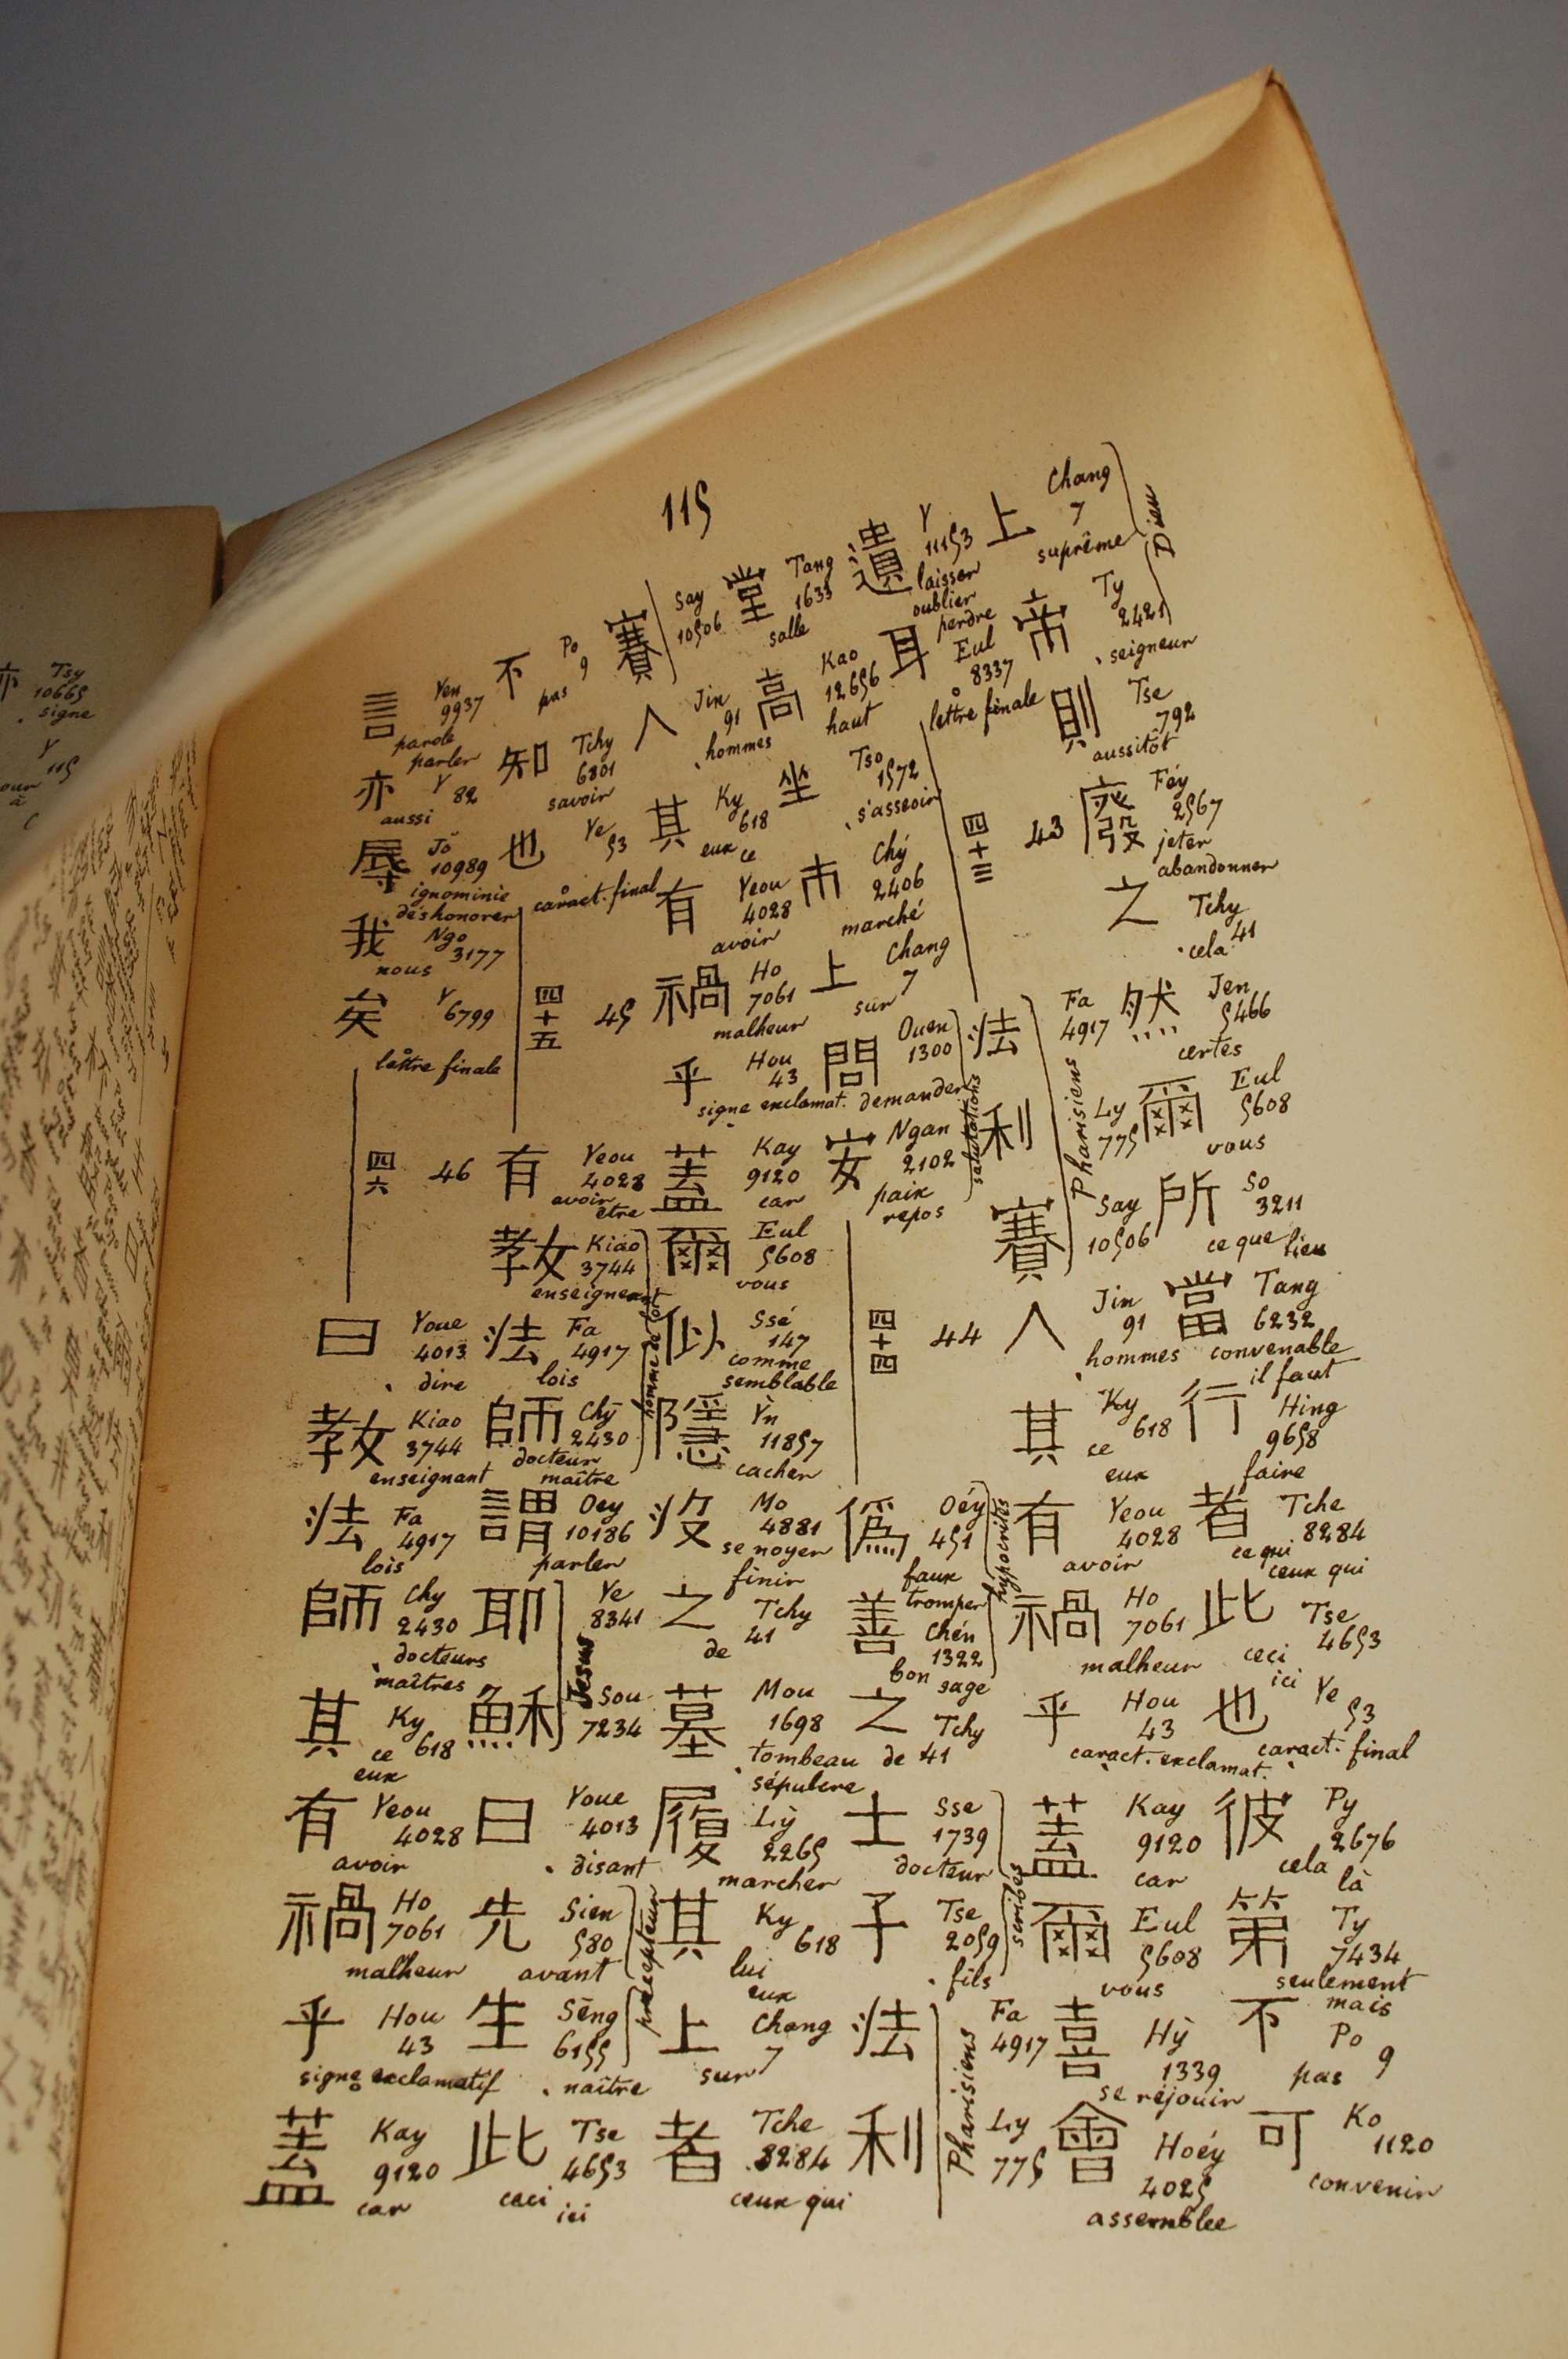 115
上 Chang 7 suprême
帝 Ty 2421 seigneur
Dieu
則 Tse 792 aussitôt
廢 Féy 2567 jeter abandonner
之 Tchy 41 cela
然 Jen 5466 certes
爾 Eul 5608 vous
所 So 3211 ce que lieu
當 Tang 6232 convenable il faut
行 Hing 9658 faire
者 Tche 8284 ce qui ceux qui
此 Tse 4653 ceci ici
也 Ye 53 caract. final
彼 Py 2676 cela là
第 Ty 7434 seulement mais
不 Po 9 pas
可 Ko 1120 convenir
遺 Y 11153 laisser oublier perdre
耳 Eul 8337 lettre finale
四十三 43
法 Fa 4917
利 Ly 775
賽 Say 10506
Pharisiens
人 Jin 91 hommes
其 Ky 618 ce eux
有 Yeou 4028 avoir
禍 Ho 7061 malheur
乎 Hou 43 caract. exclamat.
蓋 Kay 9120 car
爾 Eul 5608 vous
喜 Hỳ 1339 se réjouir
會 Hoéy 4025 assemblée
堂 Tang 1633 salle
高 Kao 12656 haut
坐 Tso 1572 s'asseoir
市 Chý 2406 marché
上 Chang 7 sur
問 Ouen 1300 demander
安 Ngan 2102 paix repos
salutations
四十四 44
偽 Oéy 451 faux tromper
善 Chén 1322 bon sage
hypocrites
之 Tchy 41 de
士 Sse 1739 docteur
子 Tse 2059 fils
scribes
法 Fa 4917
利 Ly 775
Pharisiens
賽 Say 10506
人 Jin 91 hommes
其 Ky 618 eux ce
有 Yeou 4028 avoir
禍 Ho 7061 malheur
乎 Hou 43 signe exclamat.
蓋 Kay 9120 car
爾 Eul 5608 vous
似 Ssé 147 comme semblable
隱 Ỳn 11857 cacher
沒 Mo 4881 se noyer finir
之 Tchy 41 de
墓 Mou 1698 tombeau sépulcre
履 Lỳ 2265 marcher
其 Ky 618 lui eux
上 Chang 7 sur
者 Tche 8284 ceux qui
不 Po 9 pas
知 Tchy 6801 savoir
也 Ye 53 caract. final
四十五 45
有 Yeou 4028 avoir être
教 Kiáo 3744 enseignant
法 Fa 4917 lois
師 Chȳ 2430 docteur maître
homme de loi
謂 Oey 10186 parler
耶 Ye 8341
穌 Sou 7234
Jésus
曰 Youe 4013 disant
先 Sien 580 avant
生 Sēng 6155 naître
précepteur
此 Tse 4653 ceci ici
言 Yen 9937 parole parler
亦 Y 82 aussi
辱 Jŏ 10989 ignominie déshonorer
我 Ngo 3177 nous
矣 Y 6799 lettre finale
四六 46
曰 Youe 4013 dire
教 Kiao 3744 enseignant
法 Fa 4917 lois
師 Chy 2430 docteurs maîtres
其 Ky 618 ce eux
有 Yeou 4028 avoir
禍 Ho 7061 malheur
乎 Hou 43 signe exclamatif
蓋 Kay 9120 car
Tsy 10665 signe
Y 115